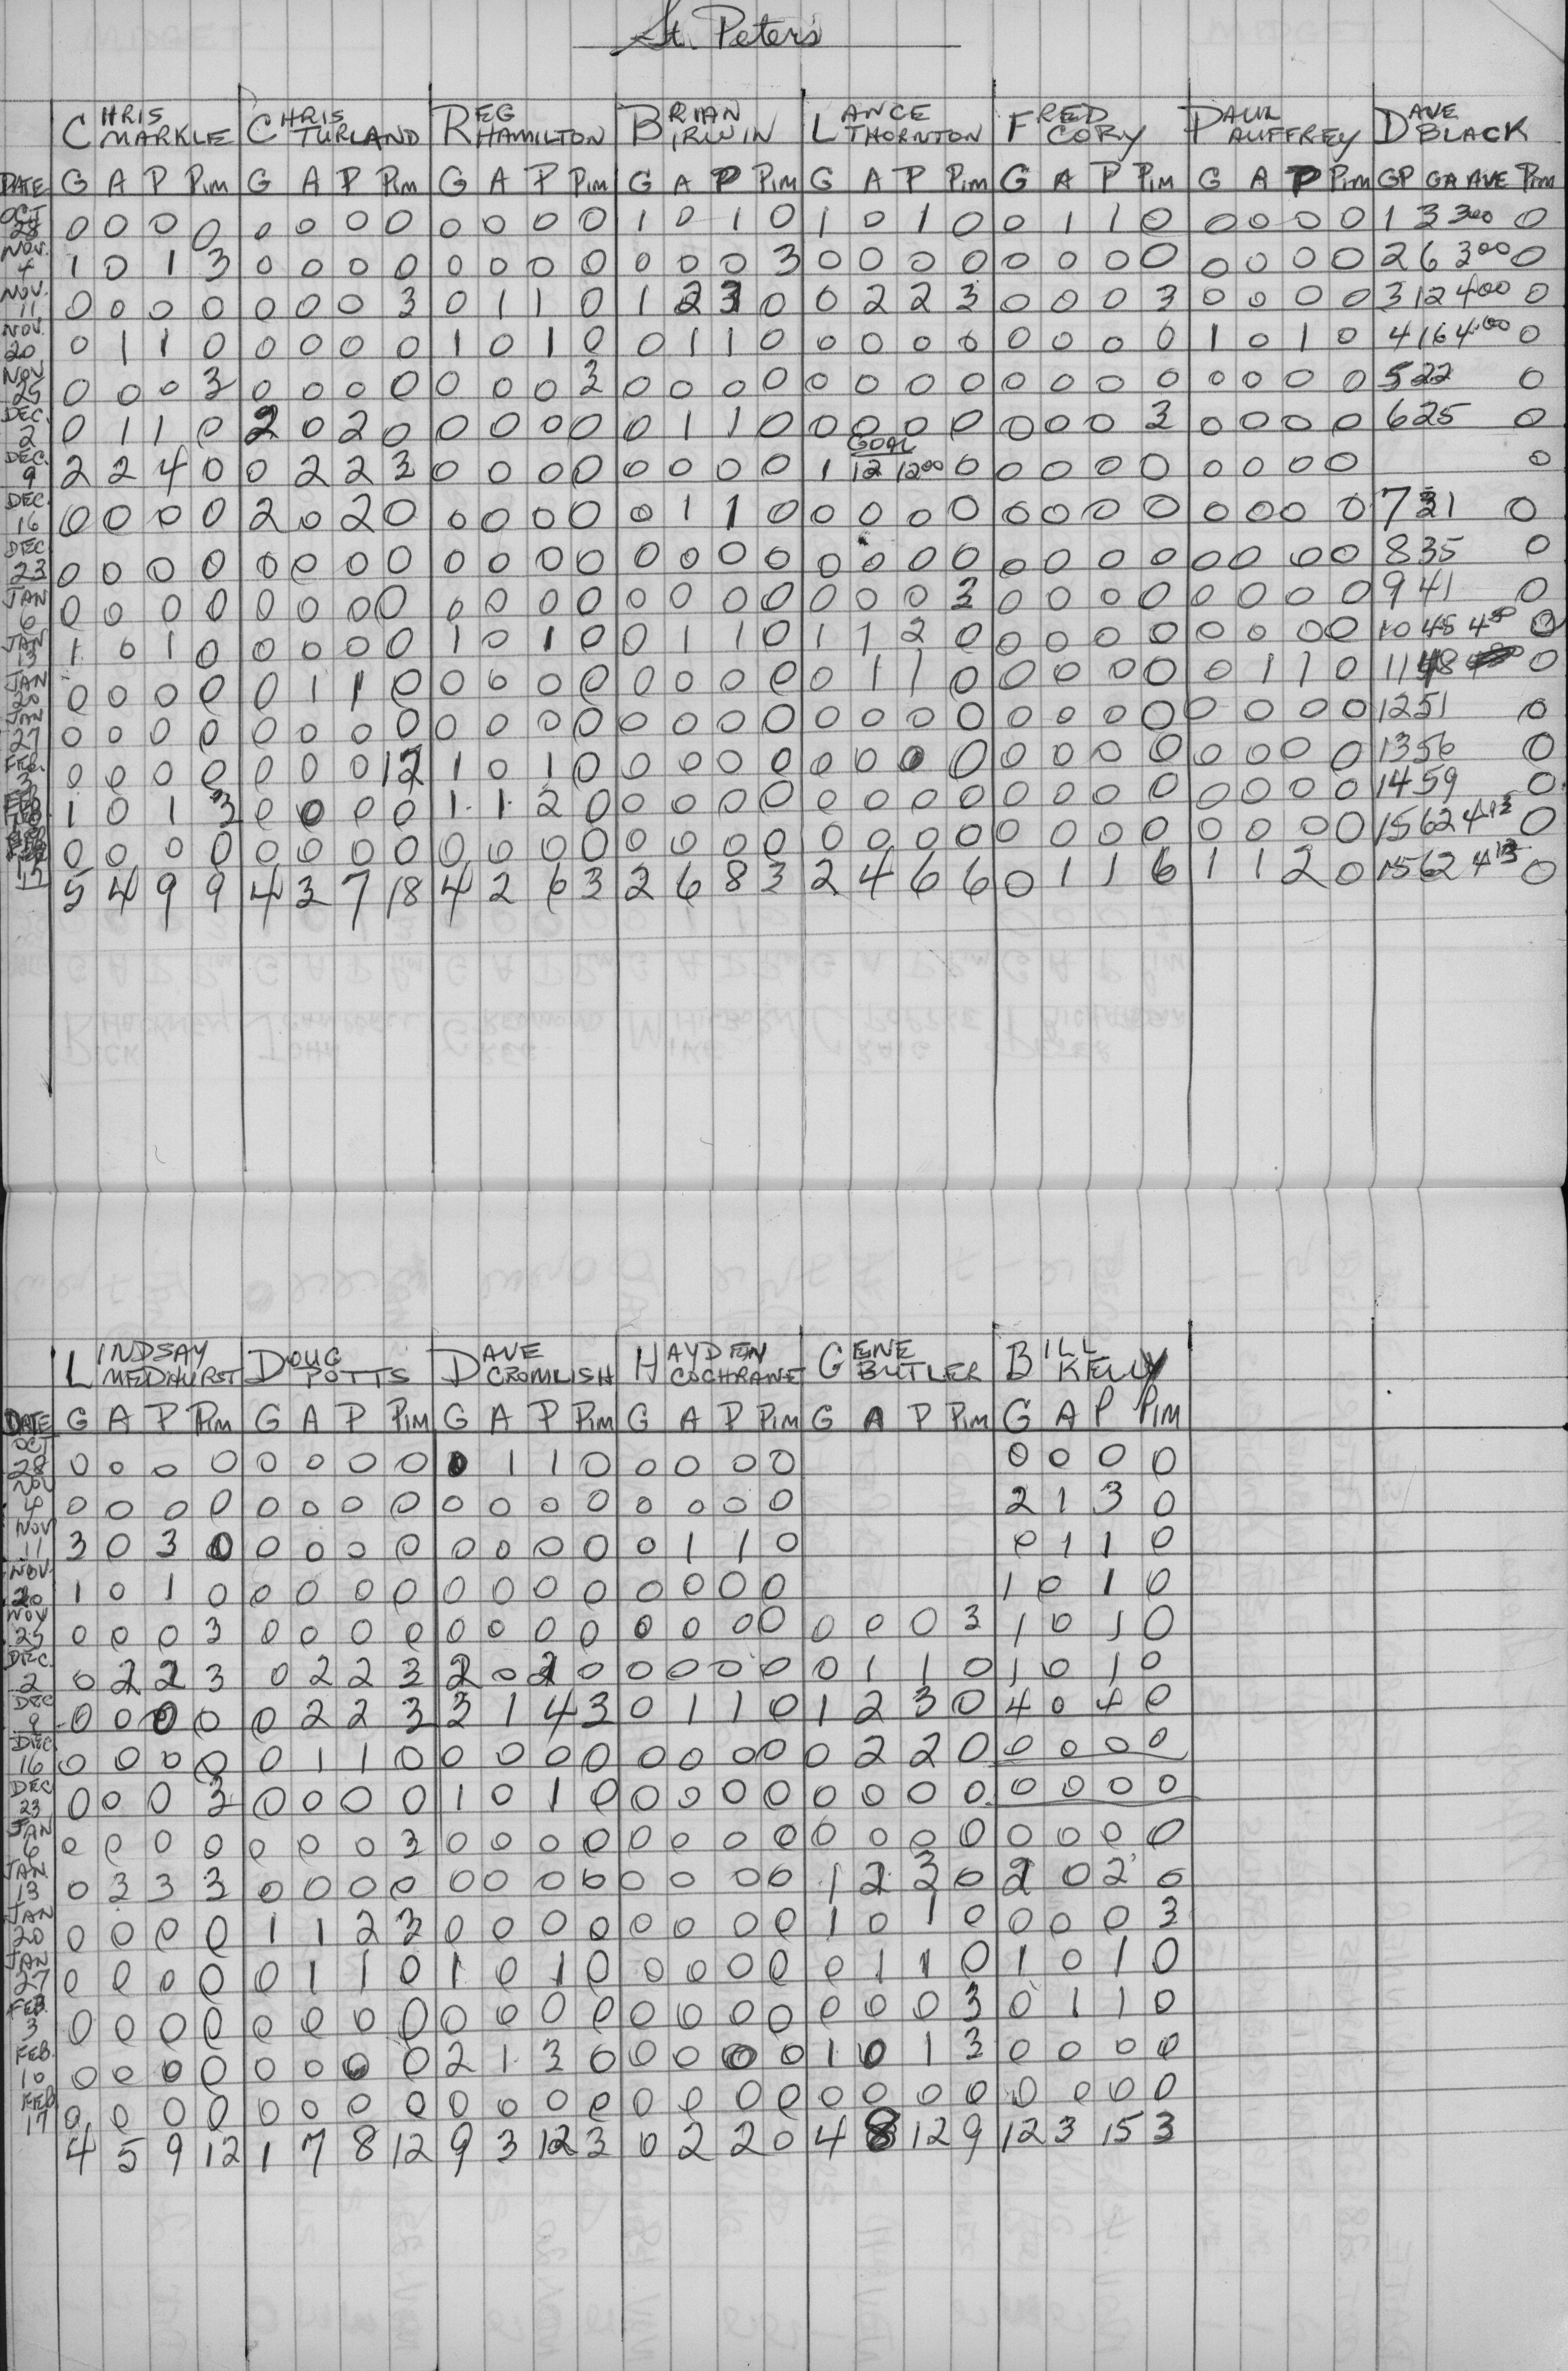 St. Peter's
CHRIS MARKLE CHRIS TURLAND REG HAMILTON BRIAN IRWIN LANCE THORNTON FRED CORY PAUL AUFFREY DAVE BLACK
DATE G A P PIM G A P PIM G A P PIM G A P PIM G A P PIM G A P PIM G A P PIM GP GA AVE PIM
OCT 28 0 0 0 0 0 0 0 0 0 0 0 0 1 0 1 0 1 0 1 0 0 1 1 0 0 0 0 0 1 3 3.00 0
NOV. 4 1 0 1 3 0 0 0 0 0 0 0 0 0 0 0 3 0 0 0 0 0 0 0 0 0 0 0 0 2 6 3.00 0
NOV. 11 0 0 0 0 0 0 0 3 0 1 1 0 1 2 3 0 0 2 2 3 0 0 0 3 0 0 0 0 3 12 4.00 0
NOV. 20 0 1 1 0 0 0 0 0 1 0 1 0 0 1 1 0 0 0 0 0 0 0 0 0 1 0 1 0 4 16 4.00 0
NOV 25 0 0 0 3 0 0 0 0 0 0 0 3 0 0 0 0 0 0 0 0 0 0 0 0 0 0 0 0 5 22 0
DEC. 2 0 1 1 0 2 0 2 0 0 0 0 0 0 1 1 0 0 0 0 0 0 0 0 3 0 0 0 0 6 25 0
DEC. 9 2 2 4 0 0 2 2 3 0 0 0 0 0 0 0 0 GOAL 1 12 12.00 0 0 0 0 0 0 0 0 0 0
DEC. 16 0 0 0 0 2 0 2 0 0 0 0 0 0 1 1 0 0 0 0 0 0 0 0 0 0 0 0 0 7 31 0
DEC 23 0 0 0 0 0 0 0 0 0 0 0 0 0 0 0 0 0 0 0 0 0 0 0 0 0 0 0 0 8 35 0
JAN 6 0 0 0 0 0 0 0 0 0 0 0 0 0 0 0 0 0 0 0 3 0 0 0 0 0 0 0 0 9 41 0
JAN 13 1 0 1 0 0 0 0 0 1 0 1 0 0 1 1 0 1 1 2 0 0 0 0 0 0 0 0 0 10 45 4.50 0
JAN 20 0 0 0 0 0 1 1 0 0 0 0 0 0 0 0 0 0 1 1 0 0 0 0 0 0 1 1 0 11 48 0
JAN 27 0 0 0 0 0 0 0 0 0 0 0 0 0 0 0 0 0 0 0 0 0 0 0 0 0 0 0 0 12 51 0
FEB. 3 0 0 0 0 0 0 0 12 1 0 1 0 0 0 0 0 0 0 0 0 0 0 0 0 0 0 0 0 13 56 0
FEB 10 1 0 1 3 0 0 0 0 1 1 2 0 0 0 0 0 0 0 0 0 0 0 0 0 0 0 0 0 14 59 0
FEB 17 0 0 0 0 0 0 0 0 0 0 0 0 0 0 0 0 0 0 0 0 0 0 0 0 0 0 0 0 15 62 4.13 0
5 4 9 9 4 3 7 18 4 2 6 3 2 6 8 3 2 4 6 6 0 1 1 6 1 1 2 0 15 62 4.13 0
LINDSAY MEDHURST DOUG POTTS DAVE CROMLISH HAYDEN COCHRANE GENE BUTLER BILL KELLY
DATE G A P PIM G A P PIM G A P PIM G A P PIM G A P PIM G A P PIM
OCT 28 0 0 0 0 0 0 0 0 0 1 1 0 0 0 0 0 0 0 0 0
NOV 4 0 0 0 0 0 0 0 0 0 0 0 0 0 0 0 0 2 1 3 0
NOV 11 3 0 3 0 0 0 0 0 0 0 0 0 0 1 1 0 0 1 1 0
NOV. 20 1 0 1 0 0 0 0 0 0 0 0 0 0 0 0 0 1 0 1 0
NOV 25 0 0 0 3 0 0 0 0 0 0 0 0 0 0 0 0 0 0 0 3 1 0 1 0
DEC. 2 0 2 2 3 0 2 2 3 2 0 2 0 0 0 0 0 0 1 1 0 1 0 1 0
DEC 9 0 0 0 0 0 2 2 3 3 1 4 3 0 1 1 0 1 2 3 0 4 0 4 0
DEC. 16 0 0 0 0 0 1 1 0 0 0 0 0 0 0 0 0 0 2 2 0 0 0 0 0
DEC 23 0 0 0 3 0 0 0 0 1 0 1 0 0 0 0 0 0 0 0 0 0 0 0 0
JAN 6 0 0 0 0 0 0 0 3 0 0 0 0 0 0 0 0 0 0 0 0 0 0 0 0
JAN 13 0 3 3 3 0 0 0 0 0 0 0 0 0 0 0 0 1 2 3 0 2 0 2 0
JAN 20 0 0 0 0 1 1 2 3 0 0 0 0 0 0 0 0 1 0 1 0 0 0 0 3
JAN 27 0 0 0 0 0 1 1 0 1 0 1 0 0 0 0 0 0 1 1 0 1 0 1 0
FEB. 3 0 0 0 0 0 0 0 0 0 0 0 0 0 0 0 0 0 0 0 3 0 1 1 0
FEB. 10 0 0 0 0 0 0 0 0 2 1 3 0 0 0 0 0 1 0 1 3 0 0 0 0
FEB 17 0 0 0 0 0 0 0 0 0 0 0 0 0 0 0 0 0 0 0 0 0 0 0 0
4 5 9 12 1 7 8 12 9 3 12 3 0 2 2 0 4 8 12 9 12 3 15 3